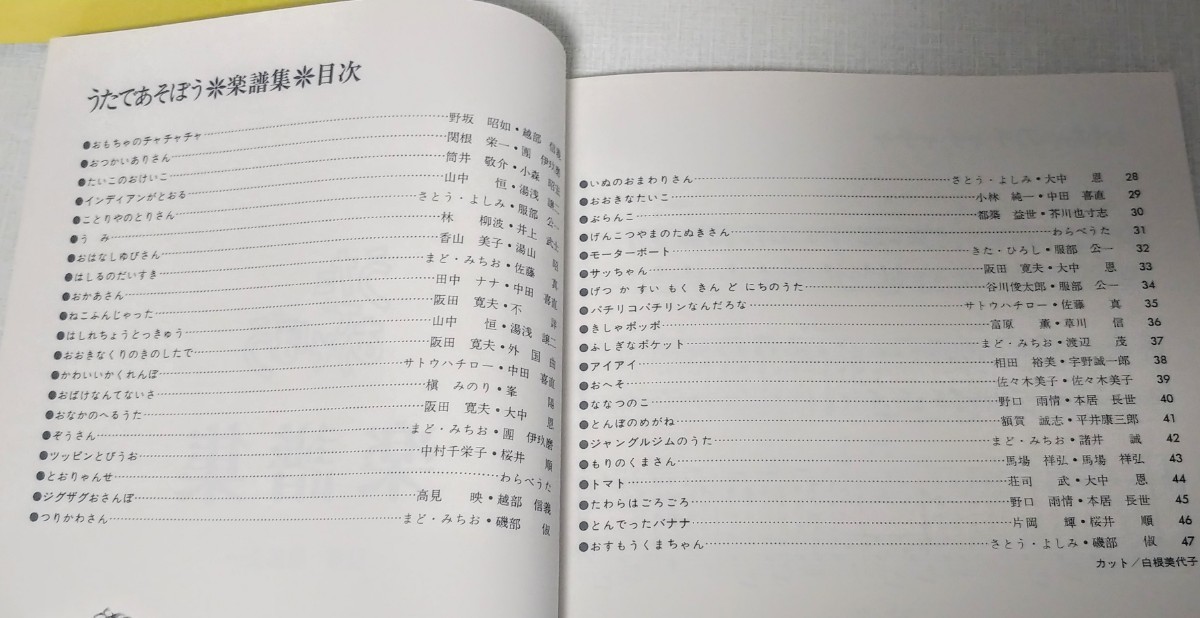 うたであそぼう＊楽譜集＊目次
●おもちゃのチャチャチャ……野坂　昭如・越部　信義
●おつかいありさん……関根　栄一・團　伊玖磨
●たいこのおけいこ……筒井　敬介・小森　昭宏
●インディアンがとおる……山中　恒・湯浅　譲二
●ことりやのとりさん……さとう・よしみ・服部　公一
●う　み……林　柳波・井上　武士
●おはなしゆびさん……香山　美子・湯山　昭
●はしるのだいすき……まど・みちお・佐藤　眞
●おかあさん……田中　ナナ・中田　喜直
●ねこふんじゃった……阪田　寛夫・不　詳
●はしれちょうとっきゅう……山中　恒・湯浅　譲二
●おおきなくりのきのしたで……阪田　寛夫・外　国　曲
●かわいいかくれんぼ……サトウハチロー・中田　喜直
●おばけなんてないさ……槇　みのり・峯　陽
●おなかのへるうた……阪田　寛夫・大中　恩
●ぞうさん……まど・みちお・團　伊玖磨
●ツッピンとびうお……中村千栄子・桜井　順
●とおりゃんせ……わらべうた
●ジグザグおさんぽ……高見　映・越部　信義
●つりかわさん……まど・みちお・磯部　俶
●いぬのおまわりさん……さとう・よしみ・大中　恩　28
●おおきなたいこ……小林　純一・中田　喜直　29
●ぶらんこ……都築　益世・芥川也寸志　30
●げんこつやまのたぬきさん……わらべうた　31
●モーターボート……きた・ひろし・服部　公一　32
●サッちゃん……阪田　寛夫・大中　恩　33
●げつ か すい もく きん ど にちのうた……谷川俊太郎・服部　公一　34
●パチリコパチリンなんだろな……サトウハチロー・佐藤　眞　35
●きしゃポッポ……富原　薫・草川　信　36
●ふしぎなポケット……まど・みちお・渡辺　茂　37
●アイアイ……相田　裕美・宇野誠一郎　38
●おへそ……佐々木美子・佐々木美子　39
●ななつのこ……野口　雨情・本居　長世　40
●とんぼのめがね……額賀　誠志・平井康三郎　41
●ジャングルジムのうた……まど・みちお・諸井　誠　42
●もりのくまさん……馬場　祥弘・馬場　祥弘　43
●トマト……荘司　武・大中　恩　44
●たわらはごろごろ……野口　雨情・本居　長世　45
●とんでったバナナ……片岡　輝・桜井　順　46
●おすもうくまちゃん……さとう・よしみ・磯部　俶　47
カット／白根美代子